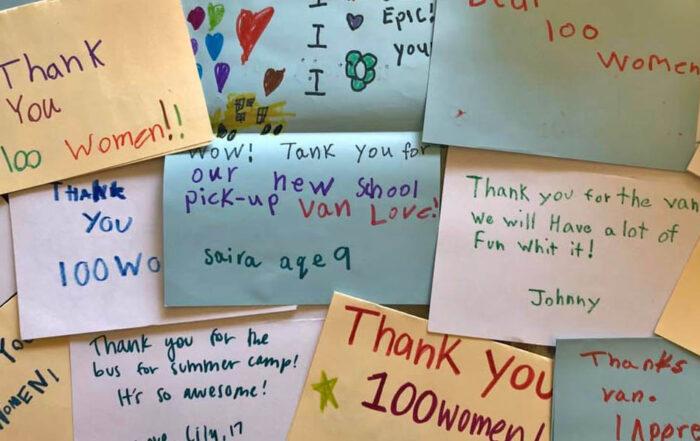 Thank
You
100 Women!!
I
I
I
Epic!
you
Dear
100
Women
WOW! Tank you for
our new School
pick-up Van Love!
saira age 9
Thank
You
100 Wo
Thank you for the van
we will Have a lot of
Fun whit it!
Johnny
WOMEN!
Thank you for the
bus for summer camp!
It's so awesome!
Lily, 17
Thank you
100women!
Thanks
van.